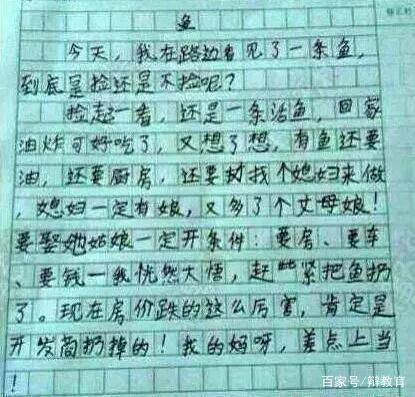 鱼
今天，我在路边看见了一条鱼，
到底是捡还是不捡呢？
捡起一看，还是一条活鱼，回家
油炸可好吃了，又想了想，有鱼还要
油，还要厨房，还要找个媳妇来做
，媳妇一定有娘，又多了个丈母娘！
要娶她姑娘一定开条件：要房、要车
、要钱一我恍然大悟，赶紧把鱼扔
了。现在房价跌的这么厉害，肯定是
开发商扔掉的！我的妈呀，差点上当
！
百家号/辩教育